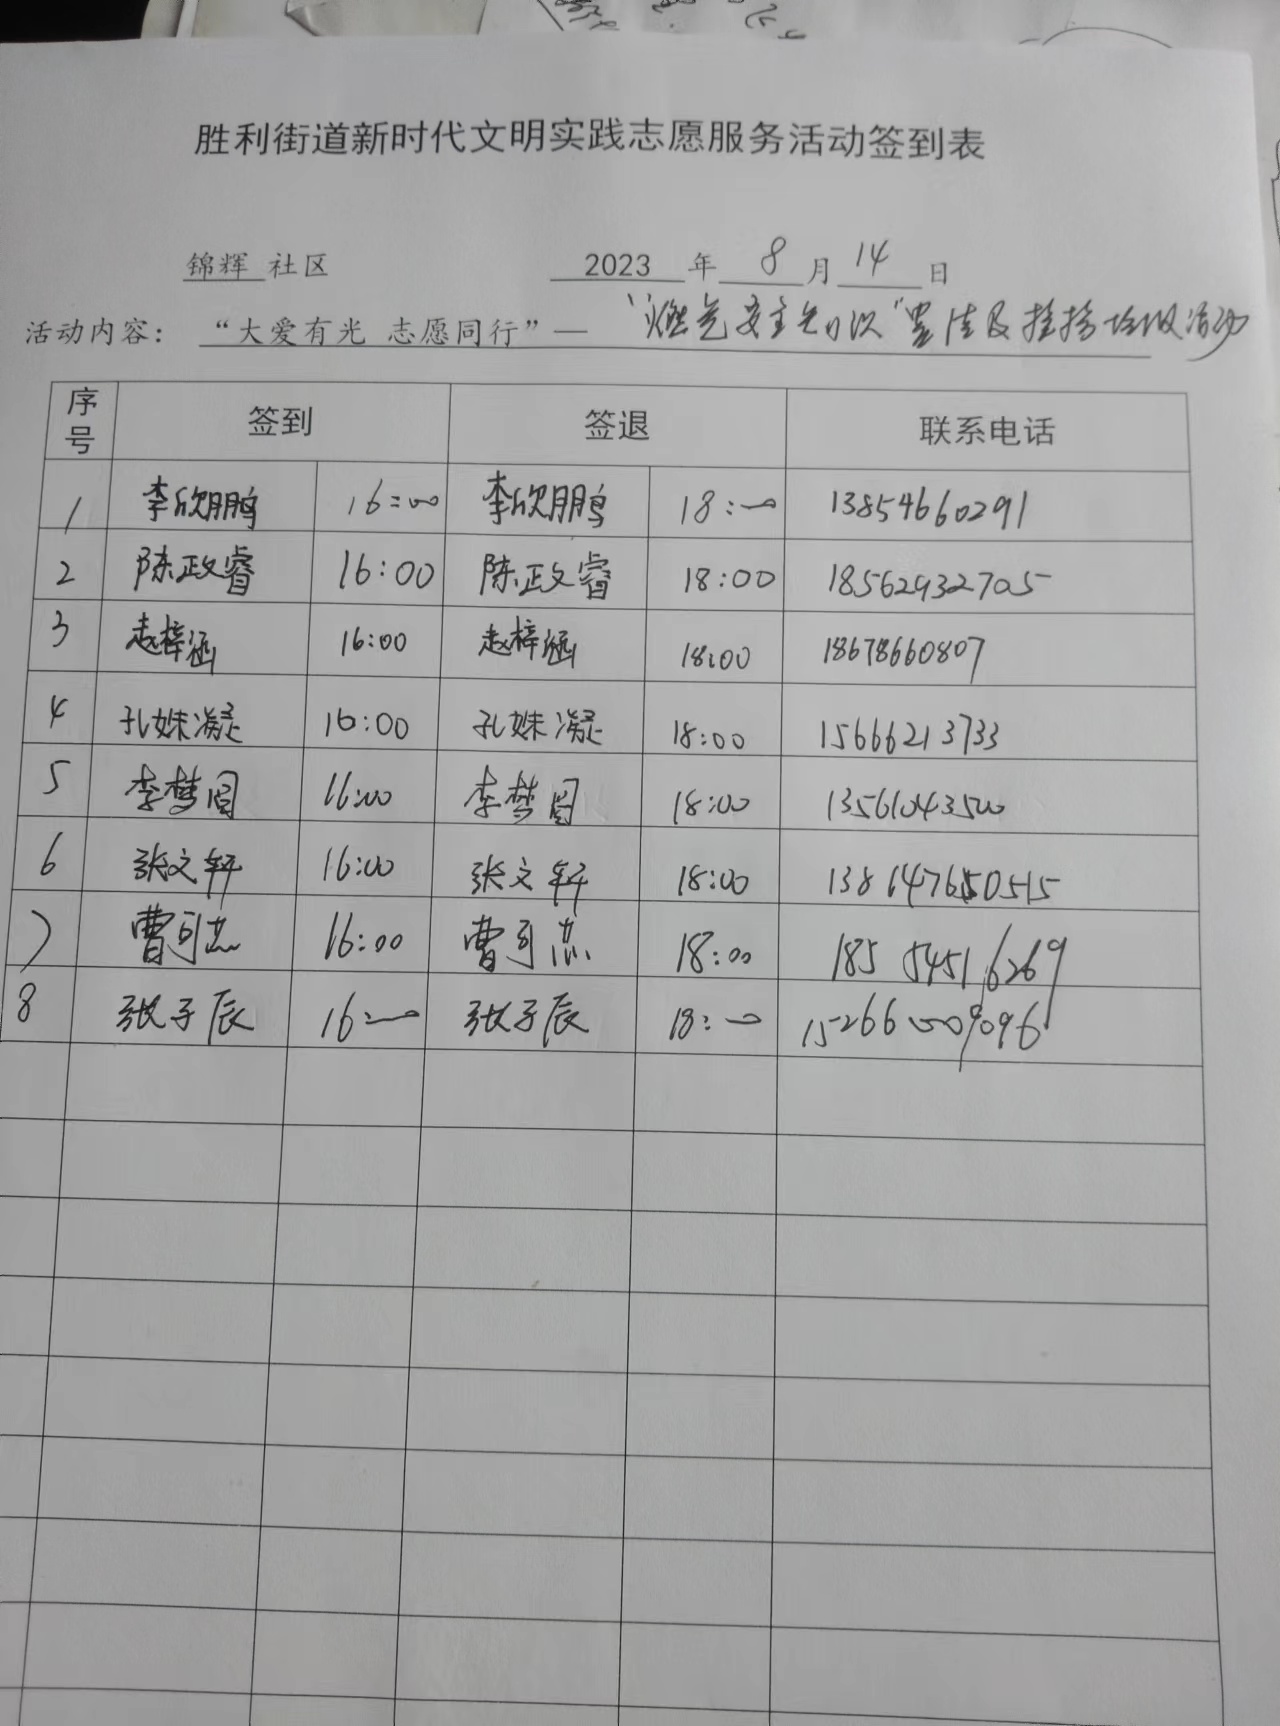 胜利街道新时代文明实践志愿服务活动签到表
锦辉 社区 2023 年 8 月 14 日
活动内容： “大爱有光 志愿同行”— “燃气安全知识”宣传及捡拾垃圾活动
序号 签到 签退 联系电话
1 李欣鹏 16:00 李欣鹏 18:00 13854660291
2 陈政睿 16:00 陈政睿 18:00 18562932705
3 赵梓涵 16:00 赵梓涵 18:00 18678660807
4 孔姝凝 16:00 孔姝凝 18:00 15666213733
5 李梦圆 16:00 李梦圆 18:00 13561043500
6 张文轩 16:00 张文轩 18:00
7 曹可 16:00 曹可 18:00 18554516269
8 张子辰 16:00 张子辰 18:00 15266009096